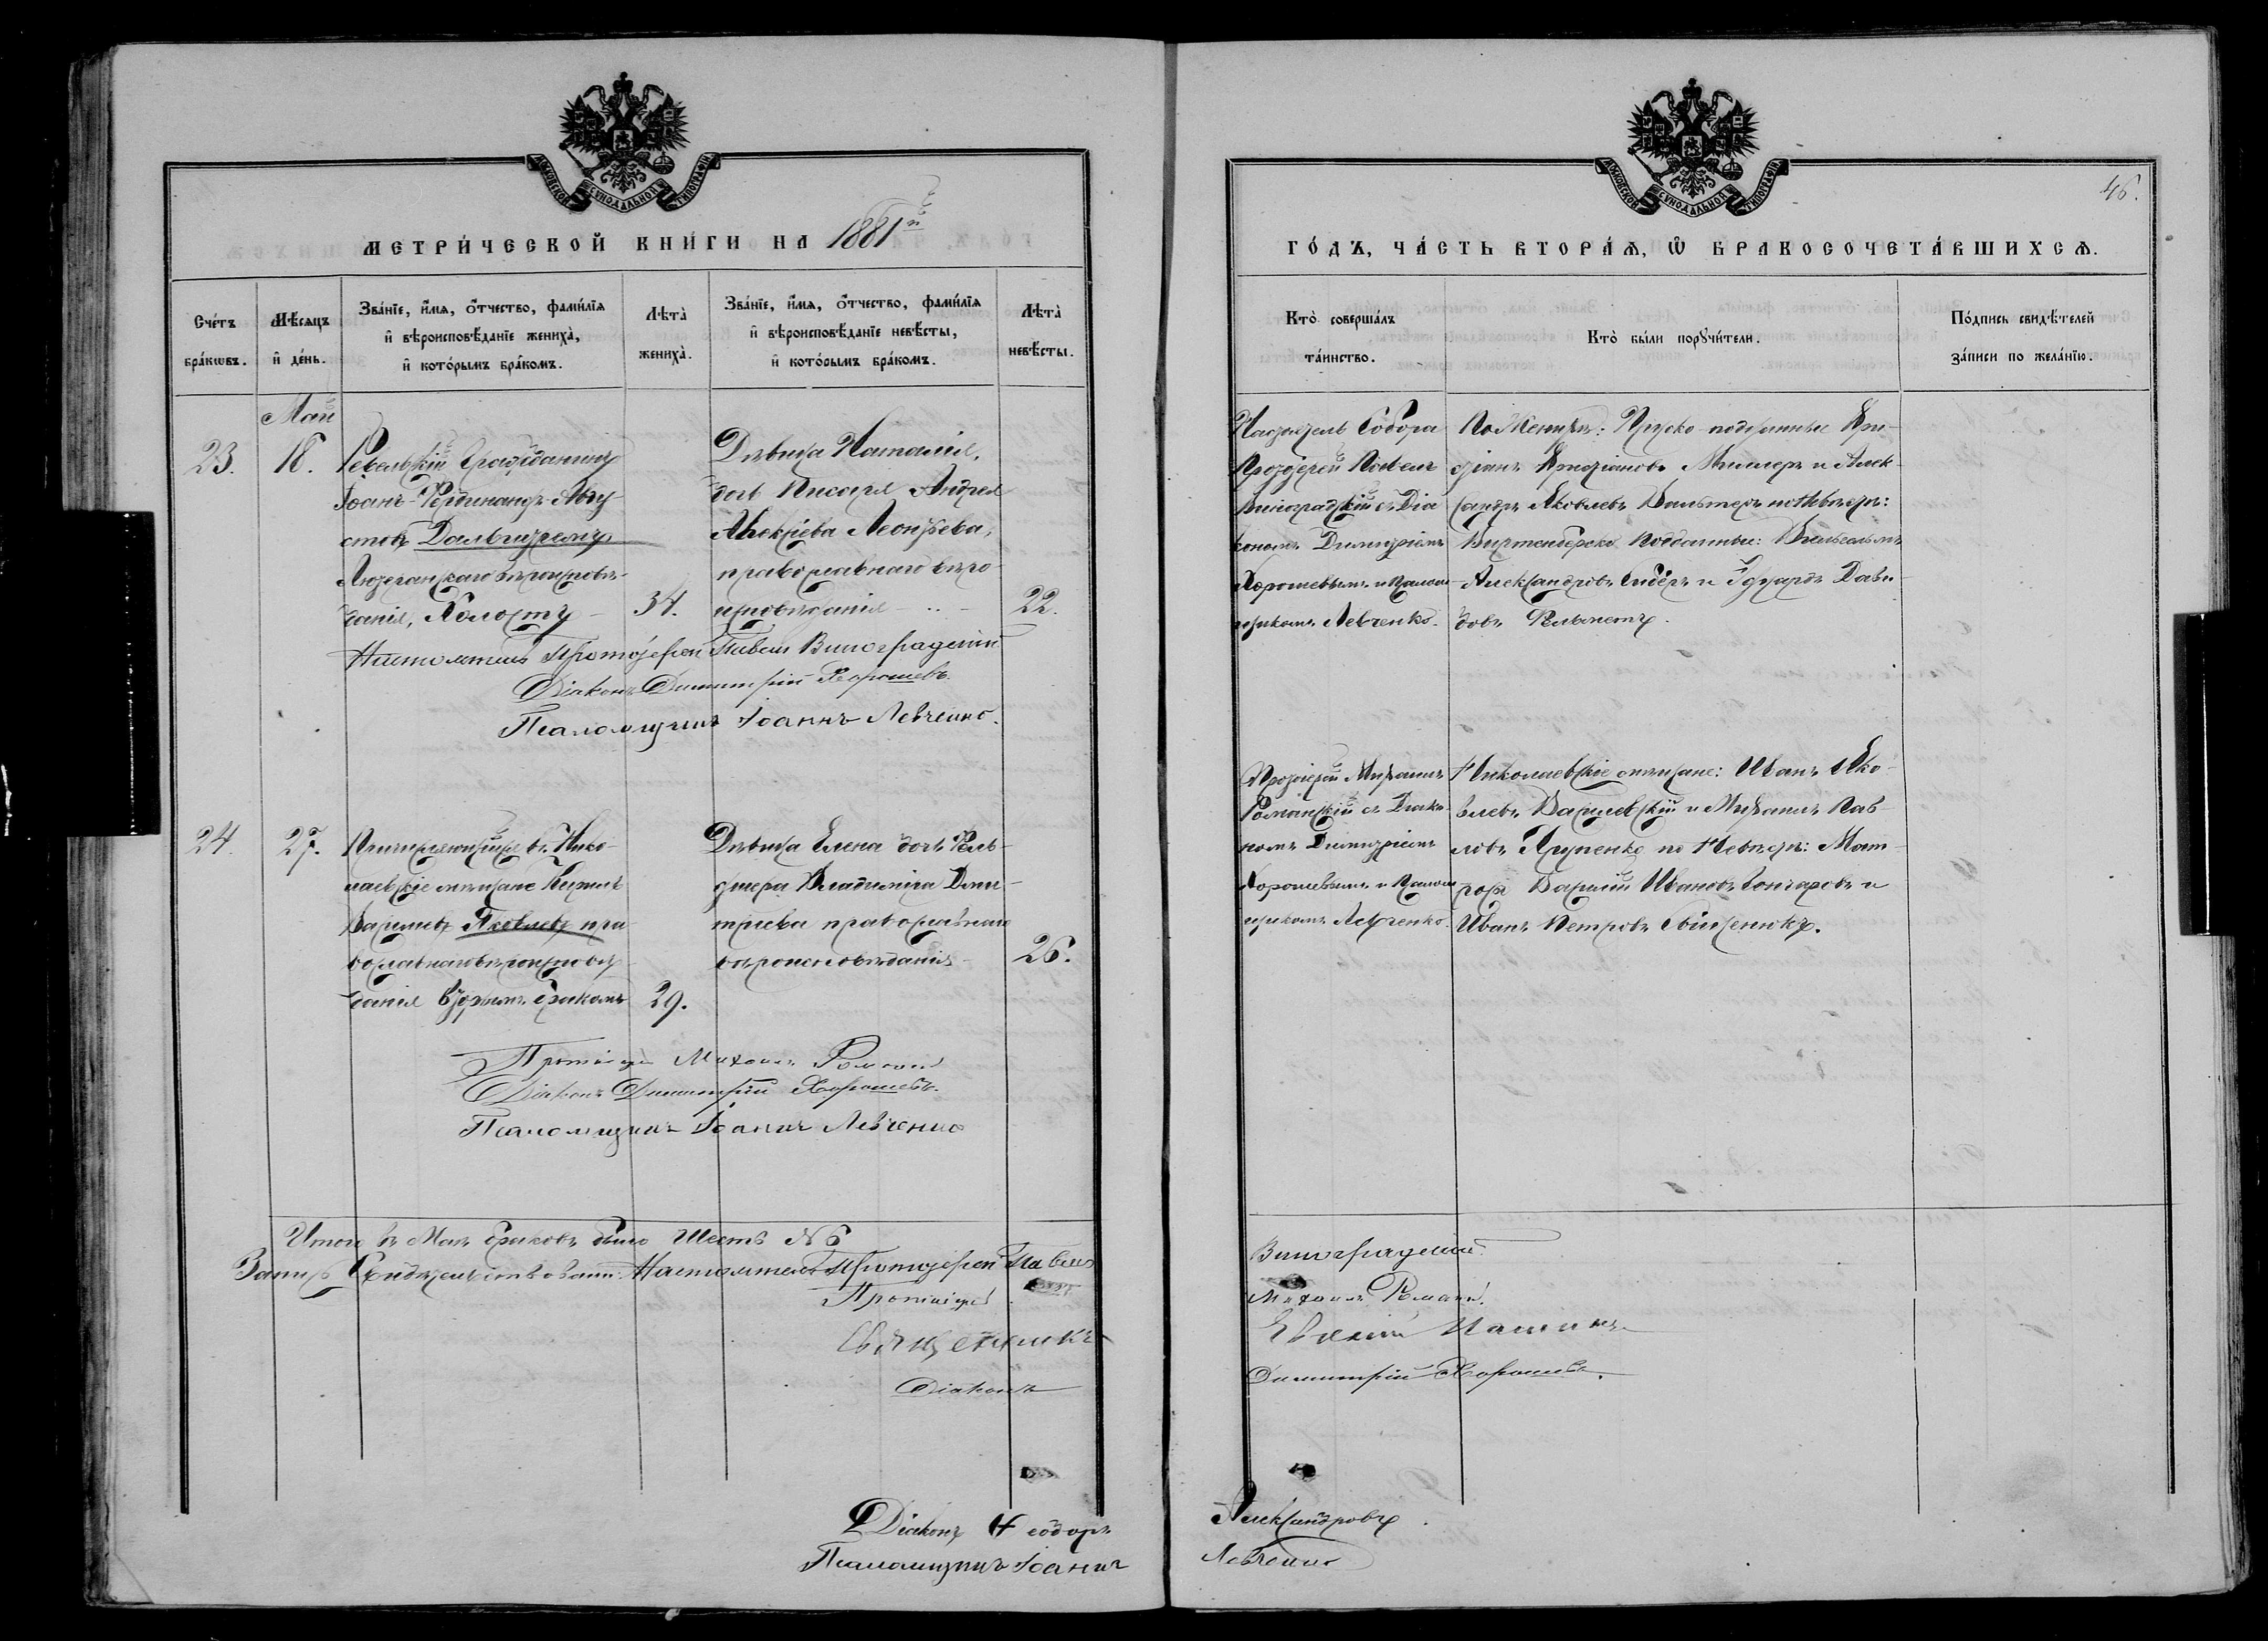 МОСКОВСКОЙ СУНОДАЛЬНОЙ ТИПОГРАФІИ
МЕТРИ́ЧЕСКОЙ КНИ́ГИ НА 1881й
Сче́тъ бра́кѡвъ.
Мѣ́сяцъ и҆ де́нь.
Зва́нїе, и҆́мѧ, ѻ҆́тчество, фами́лїѧ
и҆ вѣроисповѣ́данїе жениха̀,
и҆ кото́рымъ бра́комъ.
Лѣ́та̀ жениха̀.
Зва́нїе, и҆́мѧ, ѻ҆́тчество, фами́лїѧ
и҆ вѣроисповѣ́данїе невѣ́сты,
и҆ кото́рымъ бра́комъ.
Лѣ́та̀ невѣ́сты.
Май
23.
18.
Ревельскій Гражданинъ
Іоанъ-Фердинандъ Авгу-
стовъ
Лютеранскаго вѣроисповѣ-
данія, Холостъ
34.
Дѣвица Наталія,
дочь Писаря Андрея
Алексіева Леонтьева,
православнаго вѣро-
исповѣданія
22.
Настоятель Протоіерей Павелъ Виноградскій
Діаконъ Димитрій Хорошевъ.
Псаломщикъ Іоаннъ Левченко.
24.
27.
Причисляющійся въ Нико-
лаевскіе мѣщане Кирилъ
Васильевъ Яковлевъ пра-
вославнаго вѣроисповѣ-
данія вторымъ бракомъ
29.
Дѣвица Елена дочь Фель-
дшера Владиміра Дми-
тріева православнаго
вѣроисповѣданія
26.
Протоіерей Михаилъ
Діаконъ Димитрій Хорошевъ.
Псаломщикъ Іоаннъ Левченко
Итого въ Маѣ браковъ было Шесть №6
Запись Свидѣтельствовали: Настоятель Протоіерей Павелъ
Протоіерей
Священникъ
Діаконъ
Діаконъ Ѳеодоръ
Псаломщикъ Іоаннъ
МОСКОВСКОЙ СУНОДАЛЬНОЙ ТИПОГРАФІИ
46.
ГО́ДЪ, ЧА́СТЬ ВТОРА́Ѧ, Ѡ҆ БРАКОСОЧЕТА́ВШИХСѦ.
Кто̀ соверша́лъ та́инство.
Кто̀ бы́ли порꙋчи́тели.
По́дпись свидѣ́телей
за́писи по жела́нїю.
Настоятель Собора
Протоіерей Павелъ
Виноградскій съ Діа-
кономъ Димитріемъ
Хорошевымъ и Псалом-
щикомъ Левченко.
По Женихѣ: Прусско-подданные Хри-
стіанъ Христіановъ Миллеръ и Алек-
сандръ Яковлевъ Вальтеръ по Невѣстѣ:
Виртембергско Подданные: Вильгельмъ
Александровъ и Эдуардъ Дави-
довъ
Протоіерей Михаилъ
съ Діако-
номъ Димитріемъ
Хорошевымъ и Псалом-
щикомъ Левченко.
Николаевскіе мѣщане: Иванъ Яко-
влевъ Василевскій и Михаилъ Пав-
ловъ по Невѣстѣ: Мат-
росъ Василій Ивановъ Гончаровъ и
Иванъ Петровъ
Виноградскій.
Михаилъ
Димитрій Хорошевъ.
Александровъ
Левченко